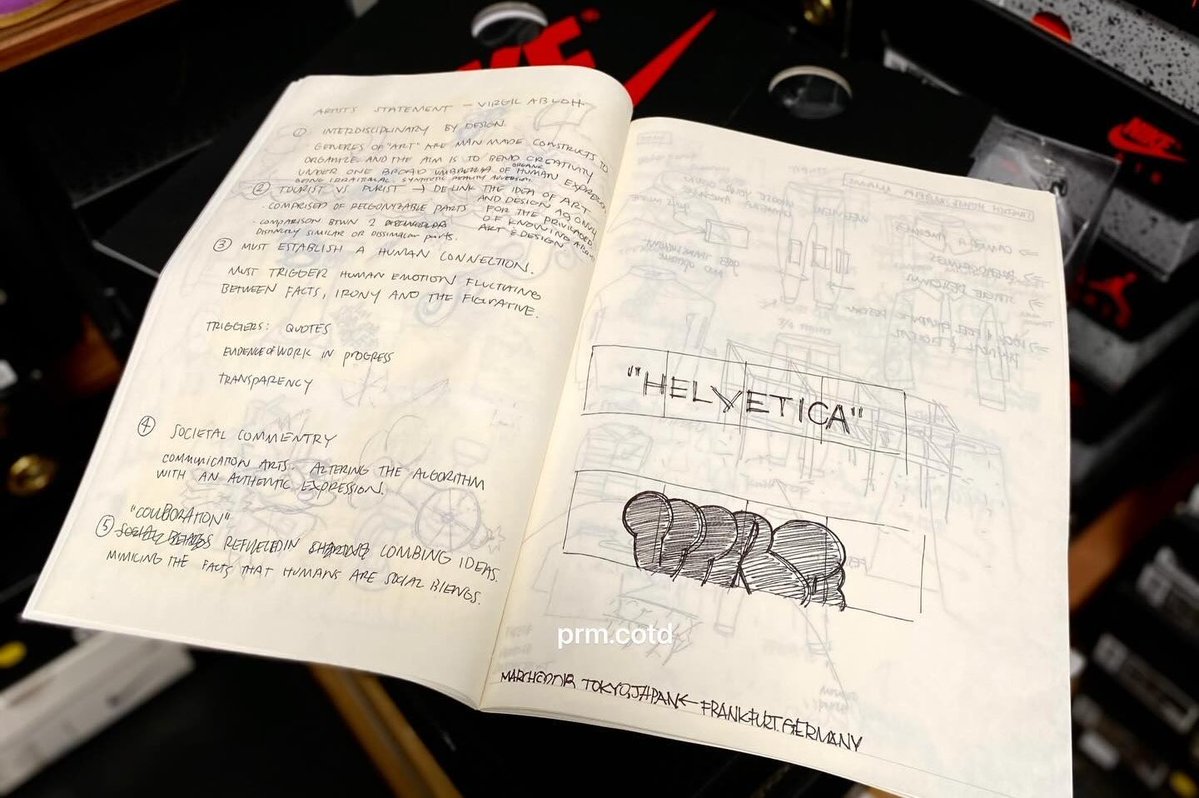 ARTIST STATEMENT - VIRGIL ABLOH
① INTERDISCIPLINARY BY DESIGN.
GENERES OF "ART" ARE MAN MADE CONSTRUCTS TO
ORGANIZE. AND THE AIM IS TO BEND CREATIVITY
UNDER ONE BROAD UMBRELLA OF HUMAN
ORGANIC
② TOURIST VS PURIST → DE-LINK THE IDEA OF ART
AND DESIGN AS ONLY
COMPRISED OF RECOGNIZABLE PARTS
FOR THE PRIVILAGED
COMPARISON BTWN 2
OF KNOWING
DISTINCTLY SIMILAR OR DISSIMILAR parts.
ART & DESIGN
③ MUST ESTABLISH A HUMAN CONNECTION.
MUST TRIGGER HUMAN EMOTION FLUCTUTING
BETWEEN FACTS, IRONY AND THE FIGURATIVE.
TRIGGERS: QUOTES
EVIDENCE of WORK IN PROGRESS
TRANSPARENCY
④ SOCIETAL COMMENTRY
COMMUNICATION ARTS. ALTERING THE ALGORITHM
WITH AN AUTHENTIC EXPRESSION.
"COLLBORATION"
⑤ REFLECTED IN COMBING IDEAS.
MIMICING THE FACTS THAT HUMANS ARE SOCIAL BEINGS.
"HELVETICA"
prm.cotd
TOKYO, JAPAN ← FRANKFURT. GERMANY
NIKE